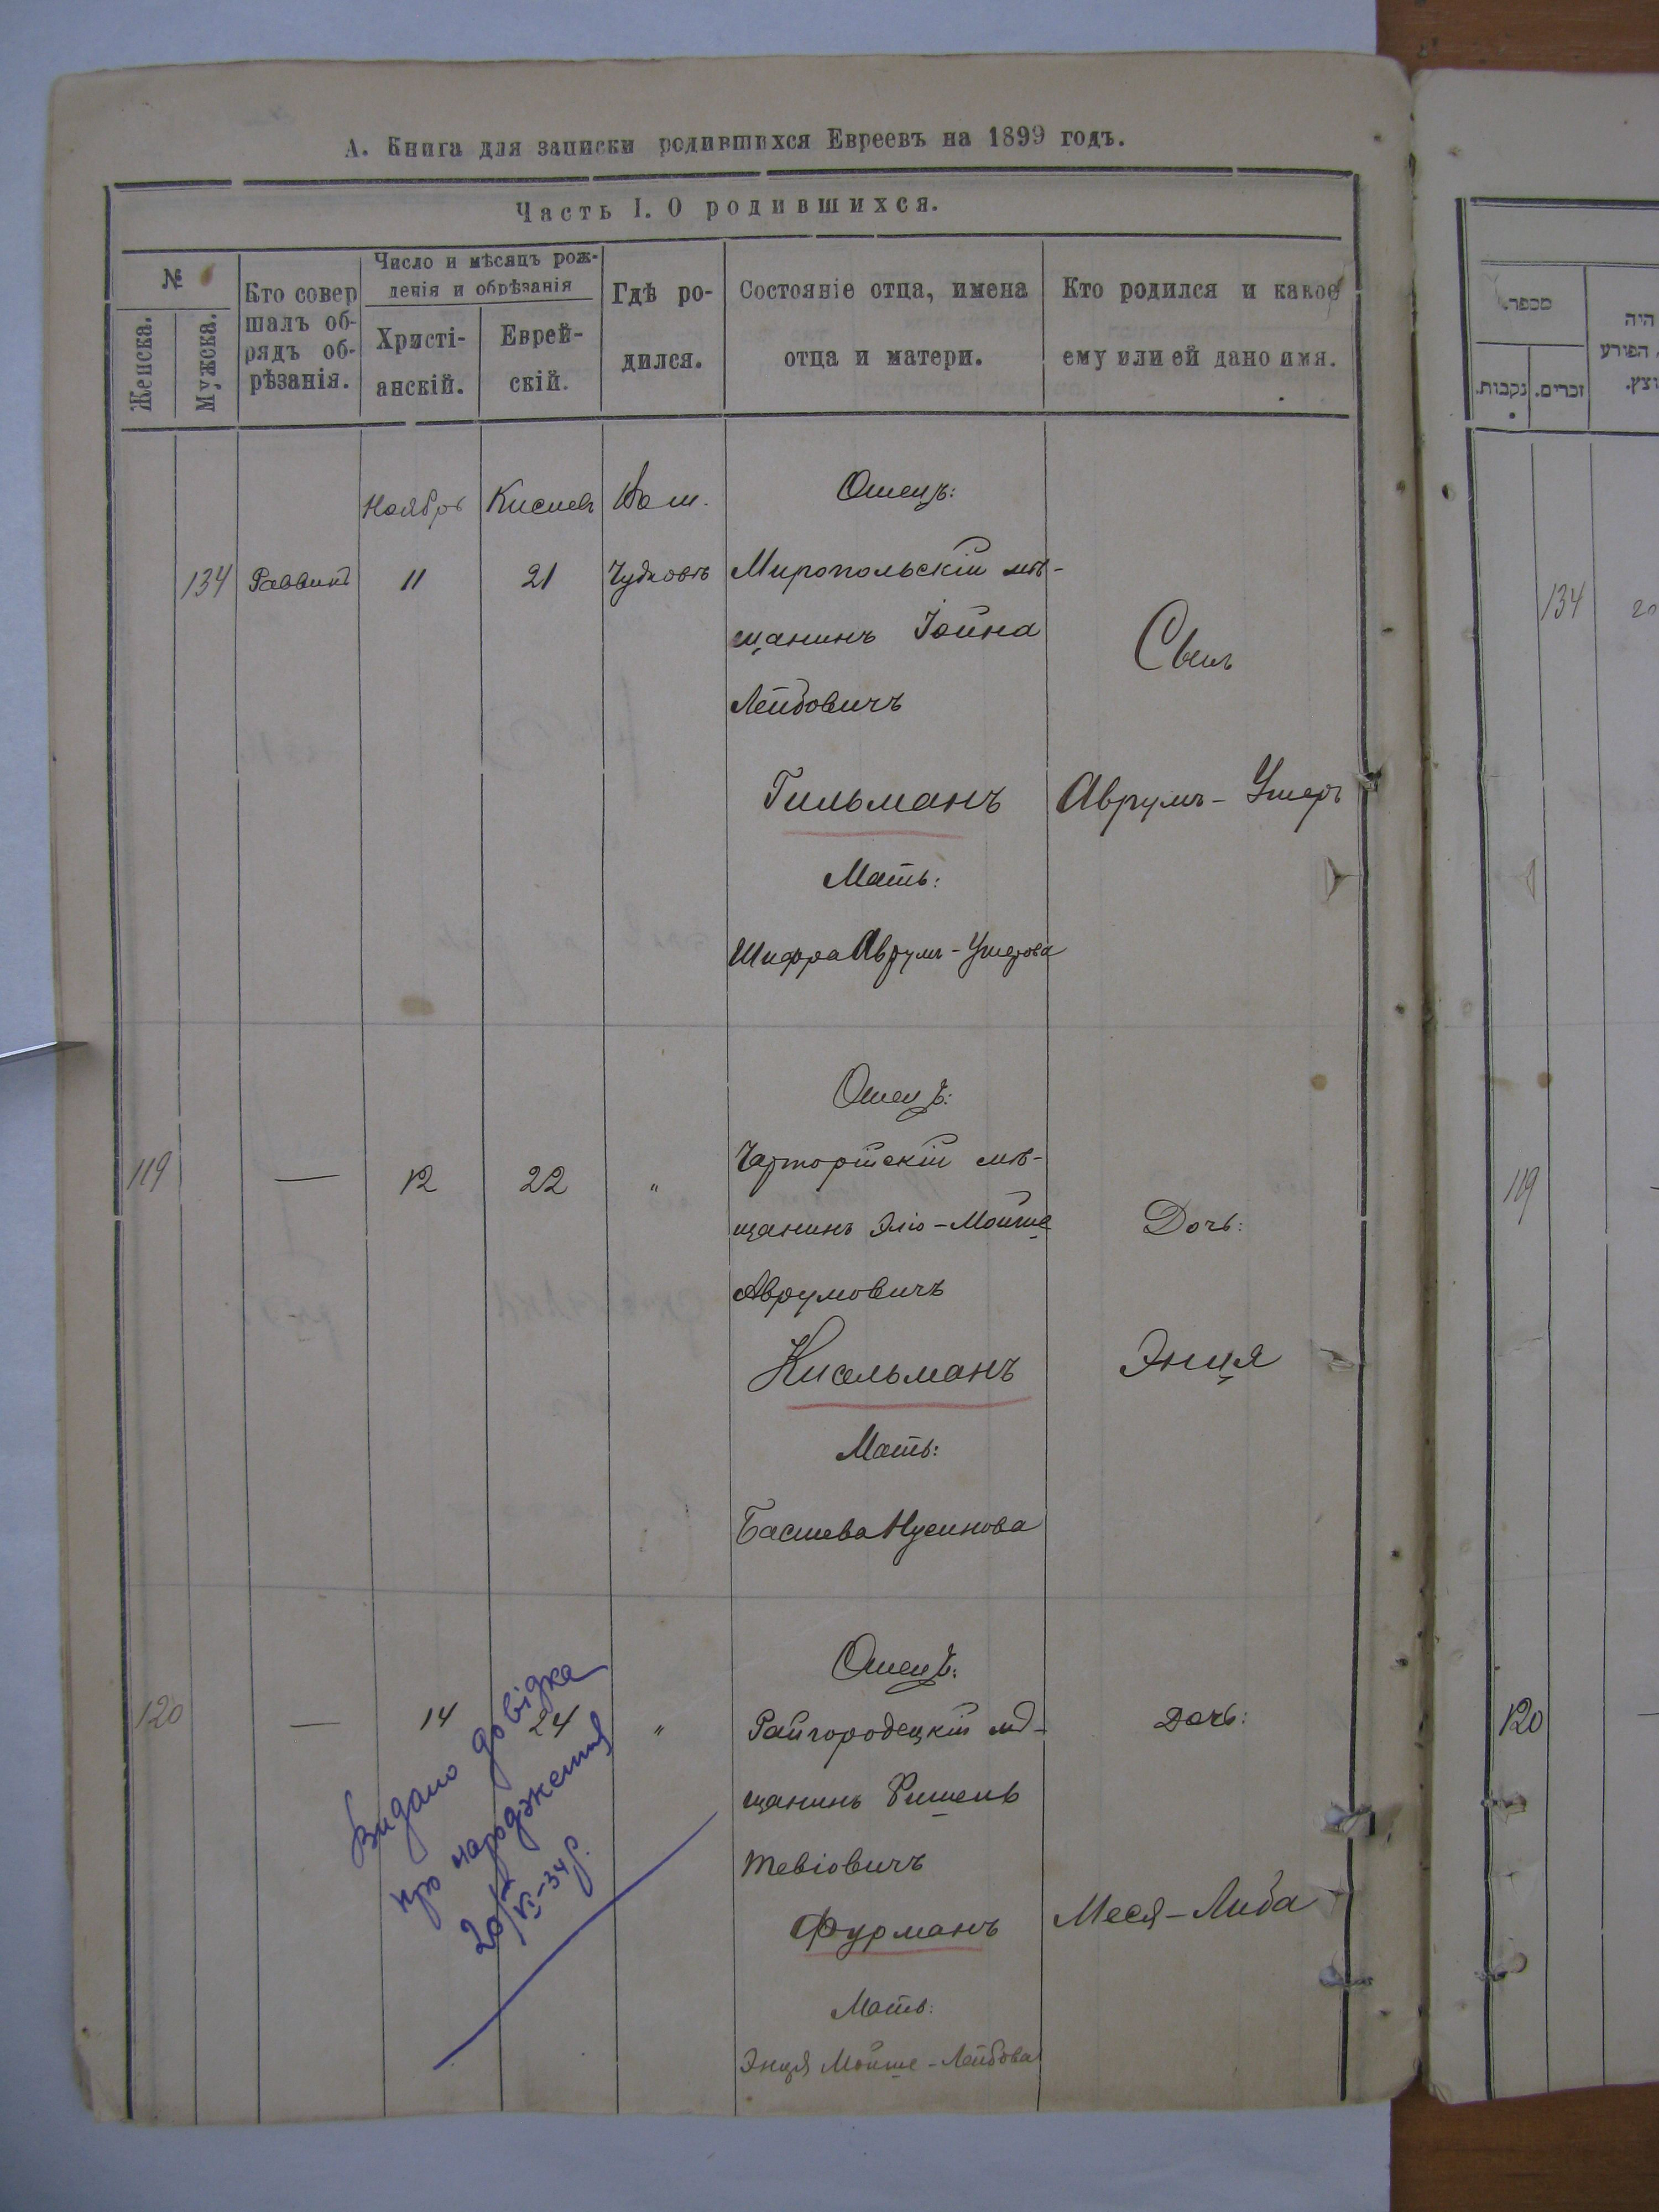 А. Книга для записки родившихся Евреевъ на 1899 годъ.
Часть I. О родившихся.
№
Женска.
Мужска.
Кто совер
шалъ об-
рядъ об-
рѣзанія.
Число и мѣсяцъ рож-
денія и обрѣзанія
Христі-
анскій.
Еврей-
скій.
Гдѣ ро-
дился.
Состояніе отца, имена
отца и матери.
Кто родился и какое
ему или ей дано имя.
Ноябрь Кислев Въ м. Отецъ:
134 Раввинъ 11 21 Чудновъ Миропольскій мѣ-
щанинъ Іойна
Лейбовичъ
Гильманъ
Мать:
Шифра Аврум-Ушерова
Сынъ
Аврумъ-Ушеръ
Отецъ:
119 — 12 22 " Чарторійскій мѣ-
щанинъ Эліо-Мойше
Аврумовичъ
Кисельманъ
Мать:
Басшева Нусинова
Дочь:
Энця
Отецъ:
120 — 14 24 " Райгородецкій мѣ-
щанинъ Фишель
Тевіовичъ
Фурманъ
Мать:
Энця Мойше-Лейбова
Дочь:
Меся-Либа
Видано довідка
про народження
20/VI-34 р.
מספר.
נקבות.
זכרים.
היה
הפורע
וצץ.
134
119
120